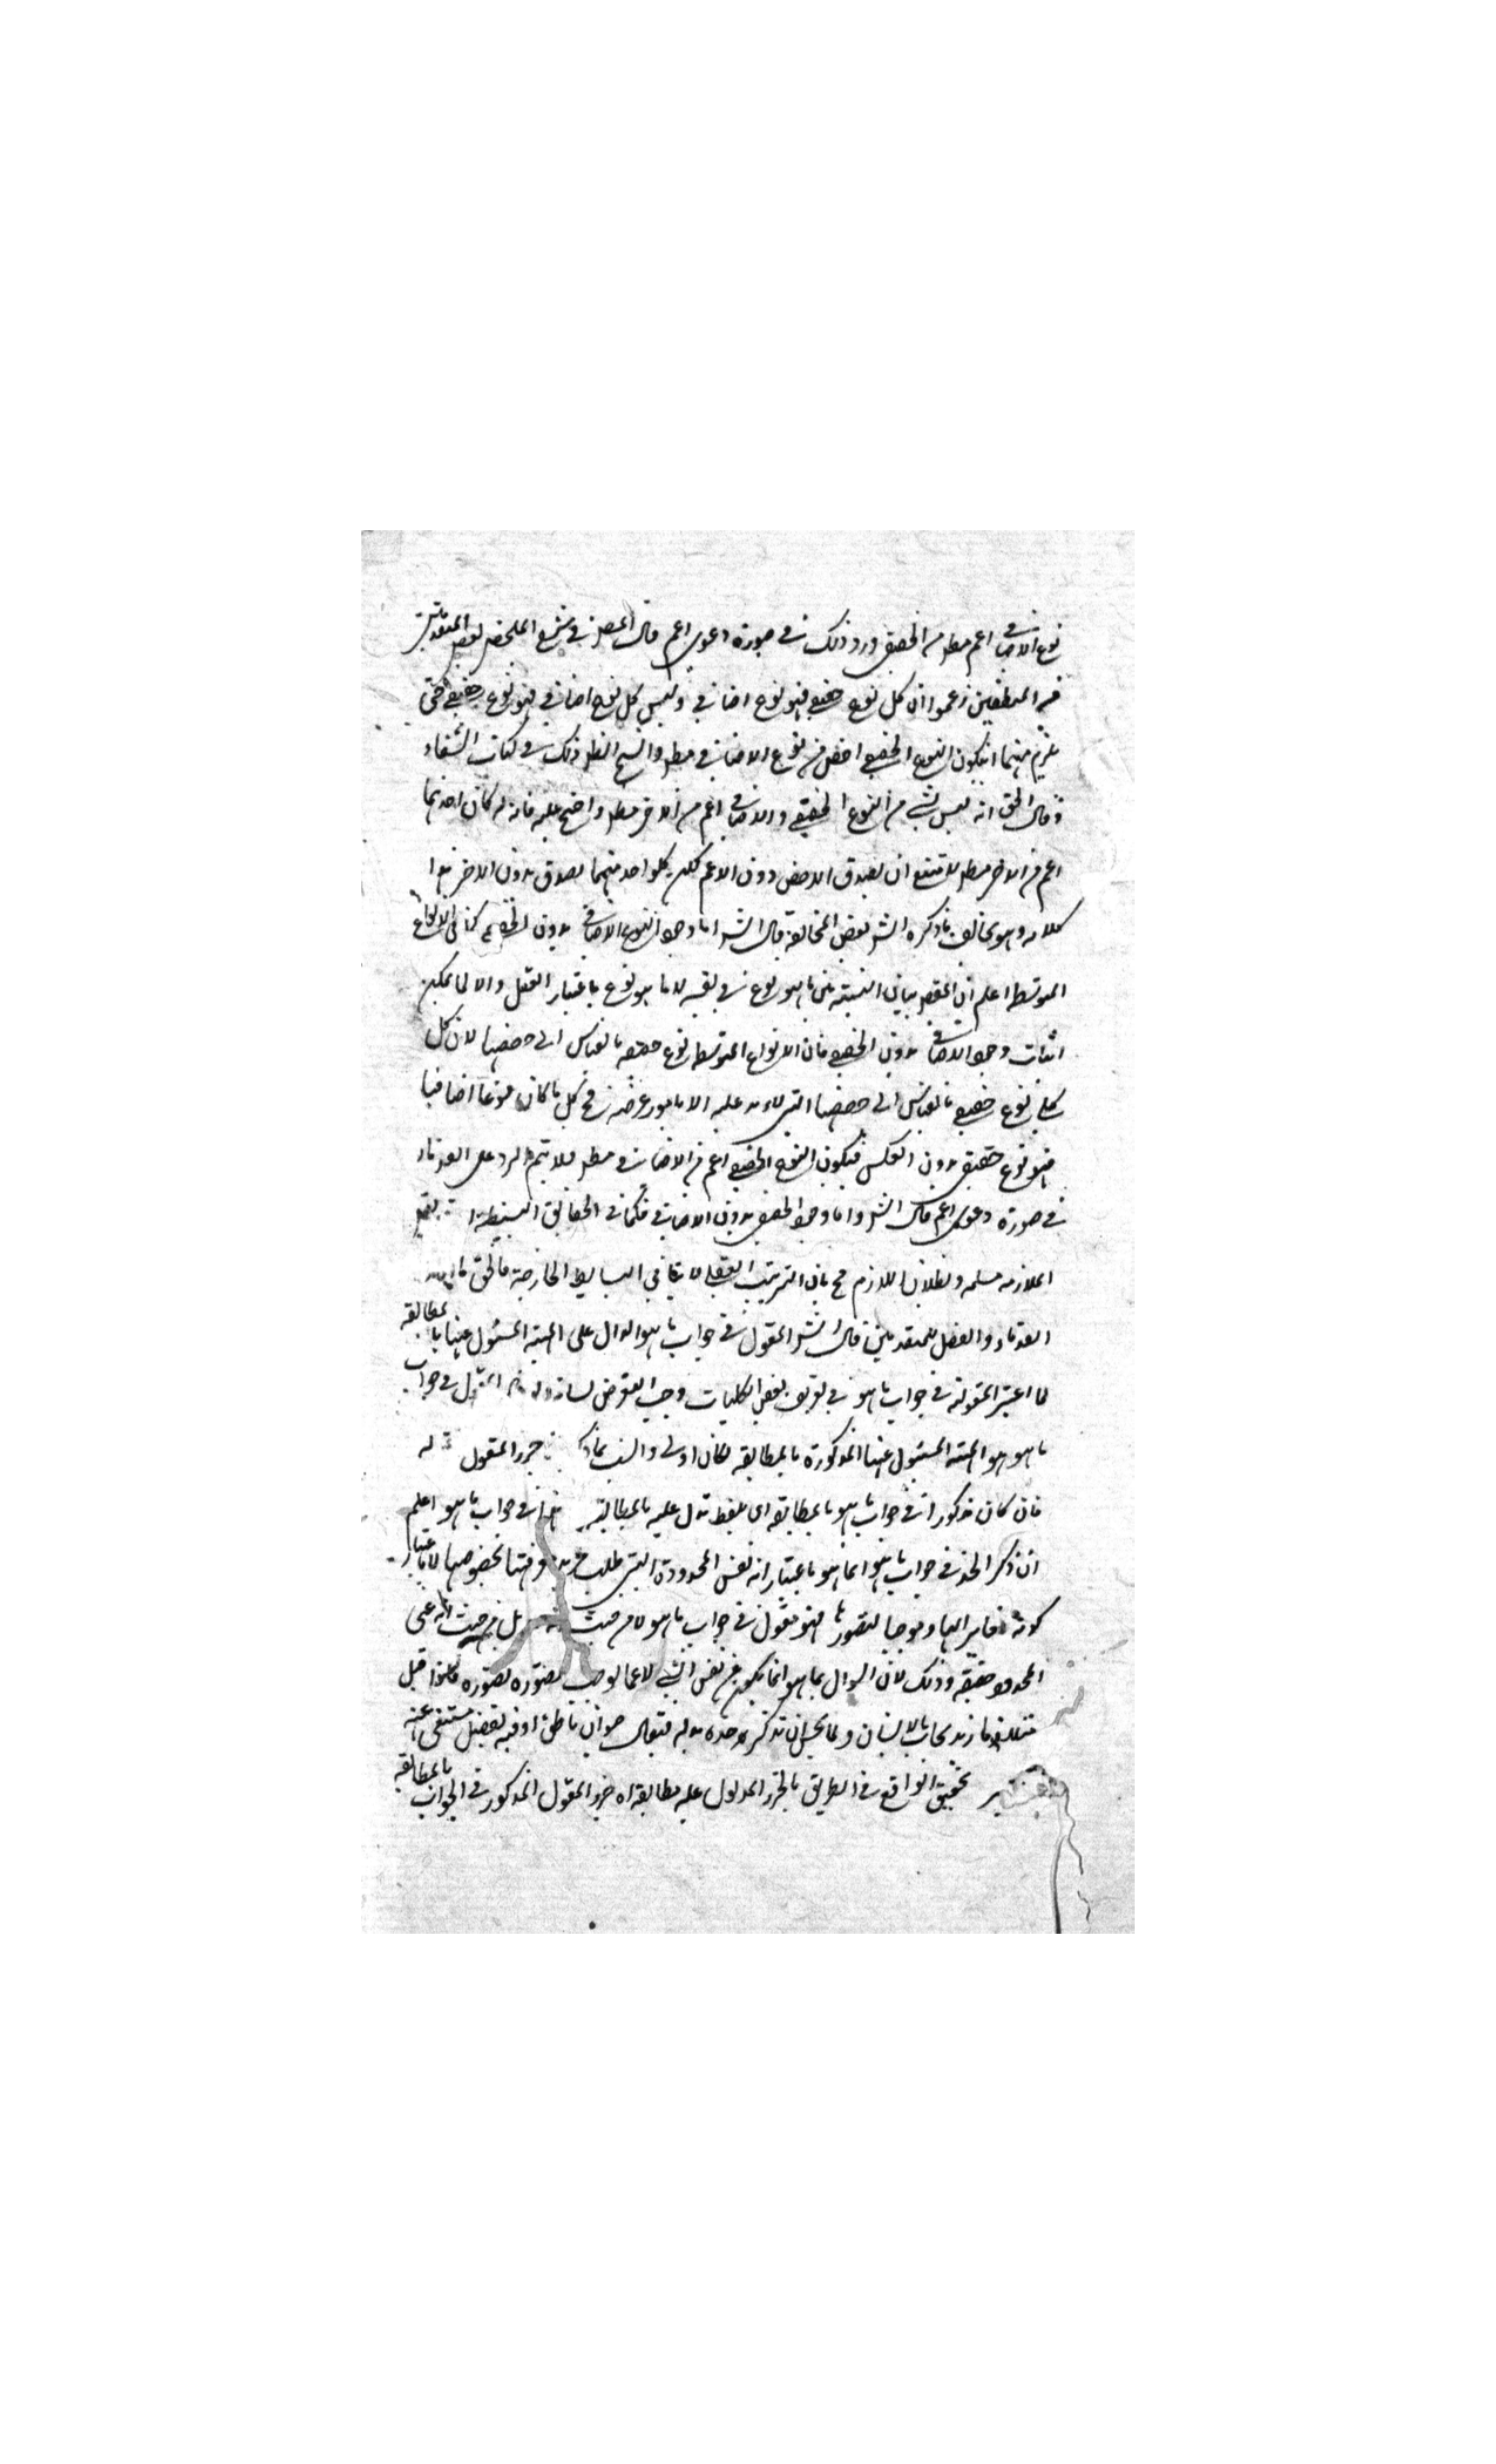 نوع الاضافى اعم مط من الحقيقى ورد ذلك فى صورة دعوى اعم قال المص فى شرح الملخص بعض المتقدمين
من المنطقيين زعموا ان كل نوع حقيقى فهو نوع اضافى وليس كل نوع اضافى فهو نوع حقيقى حتى
يلزم منهما ان يكون النوع الحقيقى اخص من نوع الاضافى مط والشيخ ابطل ذلك فى كتاب الشفاء
وقال الحق انه ليس شئ من النوع الحقيقى والاضافى اعم من الاخر مط واحتج عليه فانه لو كان احدهما
اعم من الاخر مط لامتنع ان يصدق الاخص دون الاعم لكن كل واحد منهما يصدق بدون الاخر هذا
كلامه وهو يخالف ما ذكره الش بعض المخالفة قال الش اما وجود النوع الاضافى بدون الحقيقى كما فى الانواع
المتوسطة اعلم ان المقص بيان النسبة بين ما هو نوع فى نفسه لا ما هو نوع باعتبار العقل والا لما يمكن
اثبات وجود الاضافى بدون الحقيقى فان الانواع المتوسطة نوع حقيقة بالقياس الى حصصها لان كل
كلى نوع حقيقى بالقياس الى حصصها التى لا يزيد عليه الا بامور عرضية فح كل ما كان نوعا اضافيا
فهو نوع حقيقى بدون العكس فيكون النوع الحقيقى اعم من الاضافى مط فلا يتم الرد على القدماء
فى صورة دعوى اعم قال الش واما وجود الحقيقى بدون الاضافى فكما فى الحقايق البسيطة
الملازمة مسلمة وبطلان اللازم مم فان التركيب العقلى لا ينافى البسايط الخارجية فالحق مع
القدماء والفضل للمتقدمين قال الش المقول فى جواب ما هو الدال على المهية المسئول عنها بالمطابقة
لما اعتبر المقولية فى جواب ما هو فى تعريف بعض الكليات وجب التعرض لبيانه المقول فى جواب
ما هو هو المهية المسئول عنها المذكورة بالمطابقة لكان اولى وانسب بما ذكر جزء المقول
فان كان مذكورا فى جواب ما هو بالمطابقة اى بلفظ يدل عليه بالمطابقة فى جواب ما هو اعلم
ان ذكر الحد فى جواب ما هو انما هو باعتبار انه نفس المحدودة التى طلب معرفتها بخصوصها لا باعتبار
كونه مغايرا لها وموجبا لتصورها فهو مقول فى جواب ما هو لا من حيث بل من حيث انه عين
المحدود حقيقة وذلك لان السؤال بما هو انما يكون عن نفس الشئ لا عما يوجب تصوره تصوره فلو قيل
ما زيد يجاب بالانسان ولما يحسن ان يذكر حده بدله فيقال حيوان ناطق اذ فيه تفصيل مستغنى عنه
تحقيق الواقع فى الطريق بالجزء المدلول عليه مطابقة اه جزء المقول المذكور فى الجواب بالمطابقة